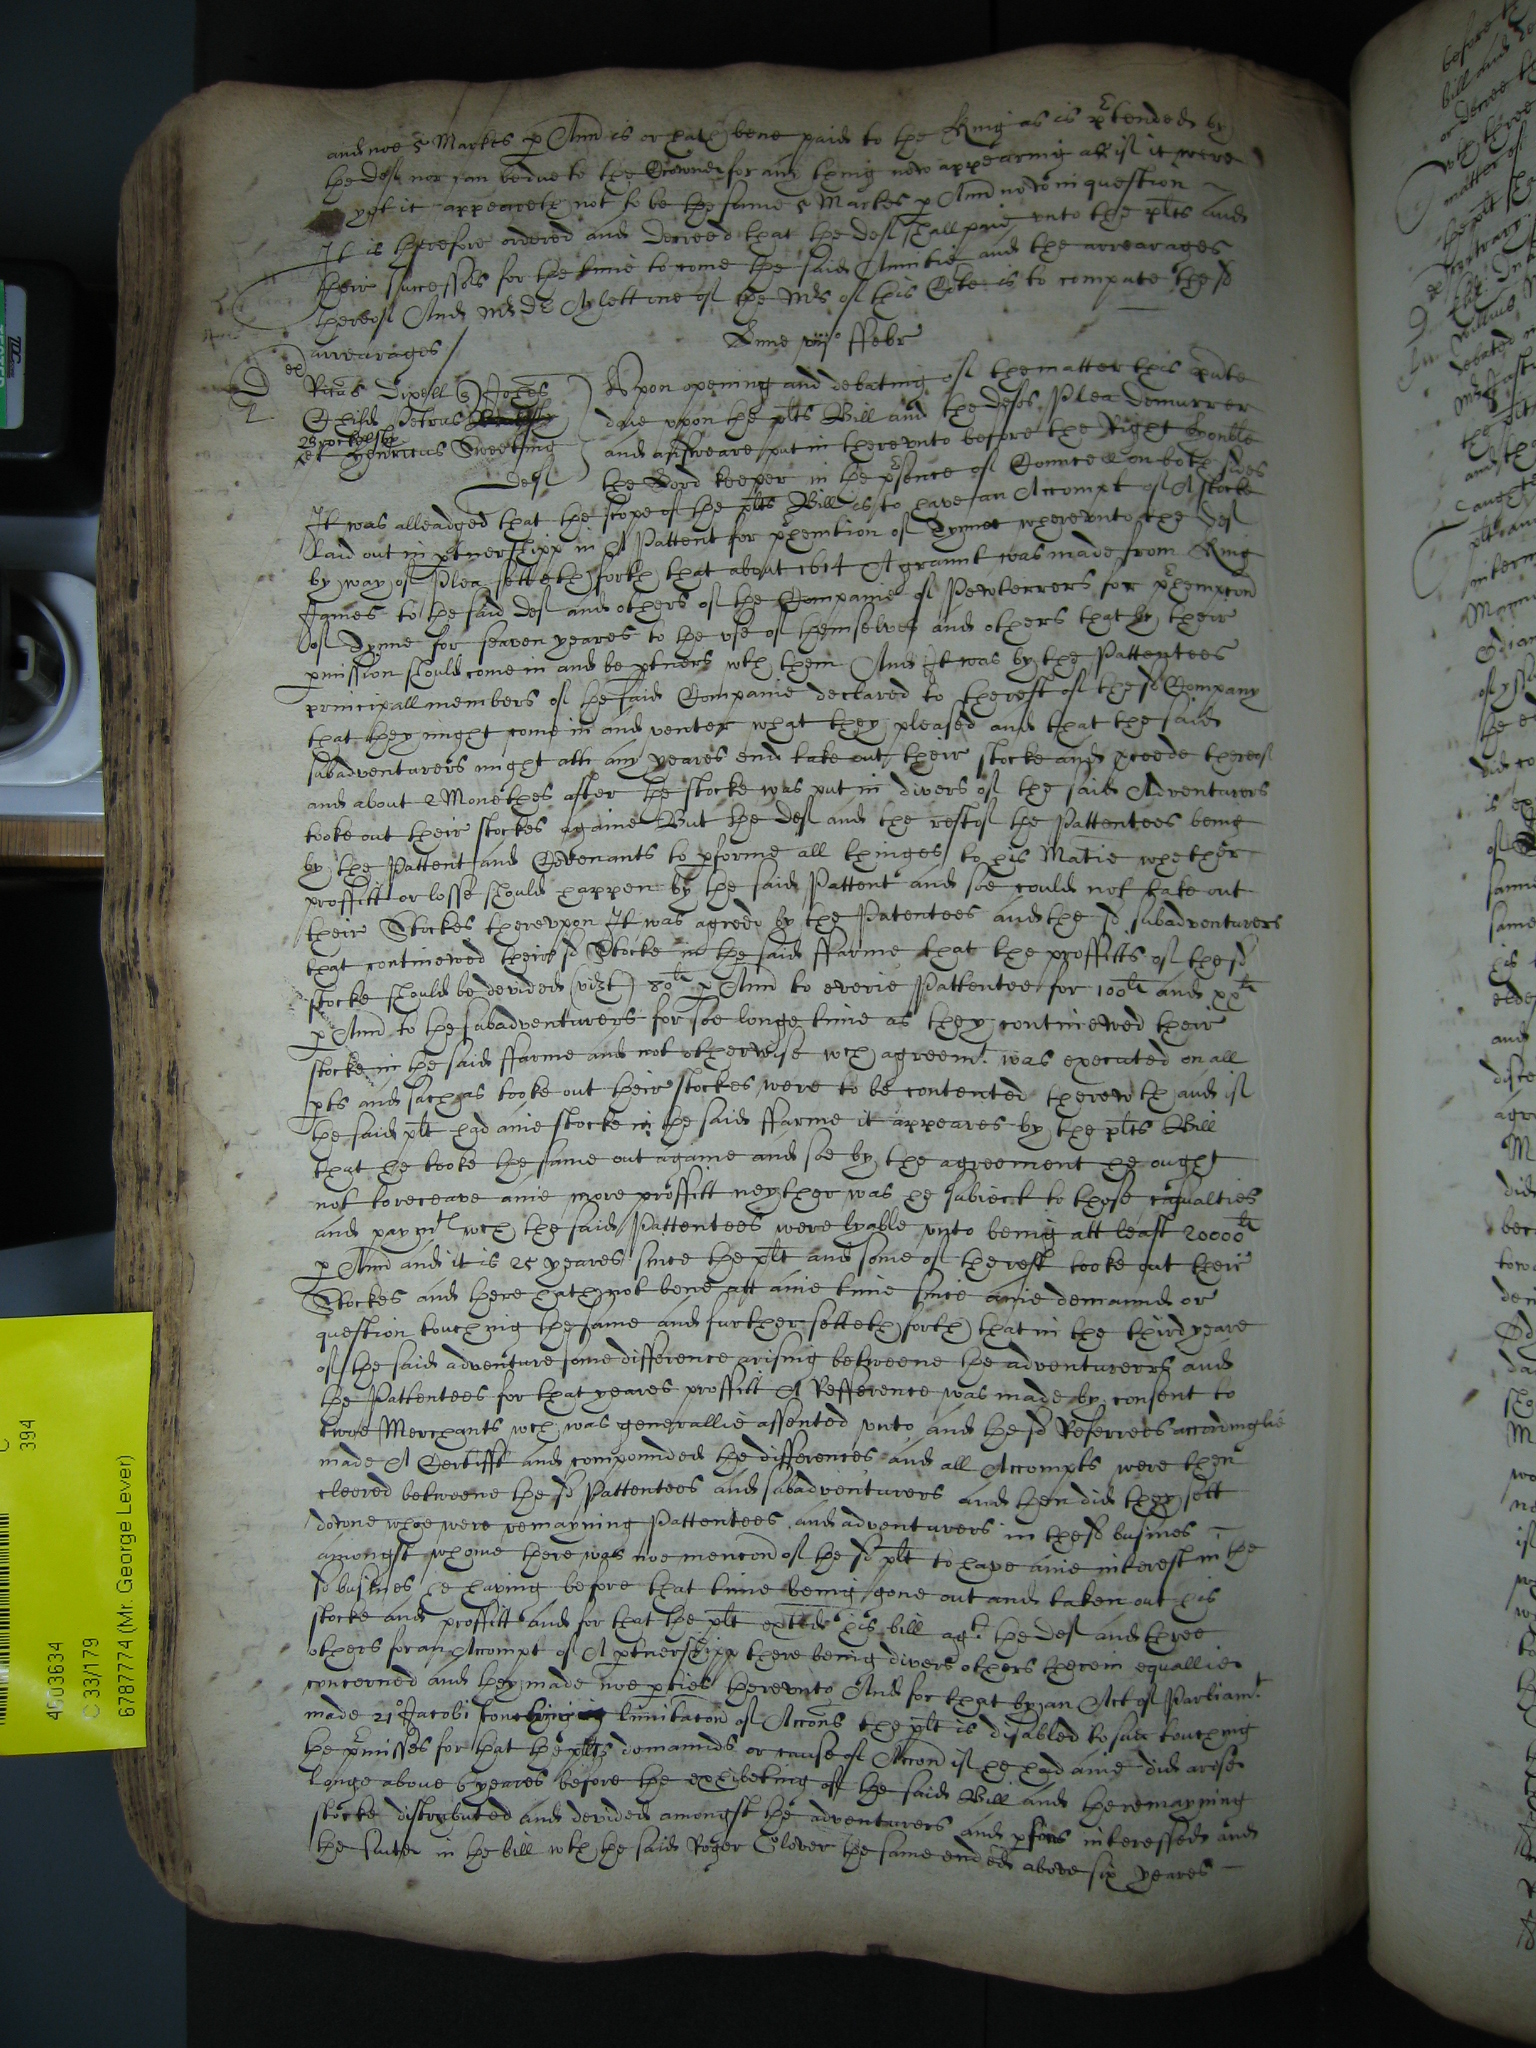 and noe 5 Markes p Ann is or hath bene paid to the King as is ptended by
the deft nor can be due to the Crowne for any thing now appearing att if it were
yet it appeareth not to be the same 5 Markes p Ann now in question
It is therefore ordered and decreed that the deft shall paie vnto the plts and
their successors for the time to come the said Annitie and the arrearages
thereof And Mr Dr Aylett one of the Mrs of this Corte is to compute the sd
arrearages
Lune viijo ffebr
Ricus Dixell Johes
Childe Petrus
et Henricus Sweeting
deft
Vpon opening and debating of the matter this pnte
daie vpon the plts Bill and the defts Plea demurrer
and answeare put in therevnto before the Right honble
the Lord keeper in the psence of Councell on both sides
It was alleadged that the scope of the plts Bill is to have an Accompt of A stocke
laid out in ptnershipp in A Pattent for pemtion of Tynne wherevnto the deft
by way of Plea setteth forth that about 1614 A graunt was made from King
James to the said deft and others of the Companie of Pewterrers for pempcon
of Tynne for seaven yeares to the vse of themselves and others that by their
pmission should come in and be ptners wth them And It was by the Pattentees
principall members of the said Companie declared to the rest of the sd Company
that they might come in and venter what they pleased and that the said
subadventurers might att any yeares end take out their stocke and pceede thereof
and about 2 Monethes after the stocke was put in divers of the said Adventurers
tooke out their stockes againe But the deft and the rest of the Pattentees being
by the Pattent and Covenants to pforme all thinges to his Matie whether
proffitt or losse should happen by the said Pattent and soe could not take out
their Stockes therevpon It was agreed by the Patentees and the sd subadventurers
that continewed their sd Stocke in the said ffarme that the proffitts of the sd
stocke should be devided (vizt) 80li p Ann to everie Pattentee for 100li and xxli
p Ann to the subadventurers for soe longe time as they continewed their
stocke in the said ffarme and not otherwise wch agreemt was executed on all
pts and such as tooke out their stockes were to be contented therewth and if
the said plt had anie stocke in the said ffarme it appeares by the plts Bill
that he tooke the same out againe and soe by the agreement he ought
not to receave anie more proffitt neyther was he subiect to those casualties
and paymt wch the said Pattentees were lyable vnto being att least 20000li
p Ann and it is 25 yeares since the plt and some of the rest tooke out their
Stockes and there hath not bene att anie time since anie demaund or
question touching the same and further setteth forth that in the third yeare
of the said adventure some difference arising betweene the adventurers and
the Pattentees for that yeares proffitt A Refference was made by consent to
twoe Merchants wch was generallie assented vnto and the sd Referrees accordinglie
made A Certifft and compounded the differences and all Accompts were then
cleered betweene the sd Pattentees and subadventurers and then did they sett
downe whoe were remayning Pattentees and adventurers in the sd busines
amongst whome there was noe mencon of the sd plt to have anie interest in the
sd busines he having before that time being gone out and taken out his
stocke and proffitt and for that the plt his bill agt the deft and three
others for an Accompt of A ptnershipp there being divers others therein equallie
concerned and they made noe pties therevnto And for that by an Act of Parliamt
made 21o Jacobi limitacon of Accons the plt is disabled to sue touching
the pmisses for that the plts demaunds or cause of Accon if he had anie did arise
longe above 6 yeares before the exhibeting of the said Bill and the remayning
stocke distributed and devided amongst the adventurers and psons interessed and
the suite in the bill wth the said Roger Glover the same ended above six yeares
C
394
4003634
C 33/179
6787774 (Mr. George Lever)